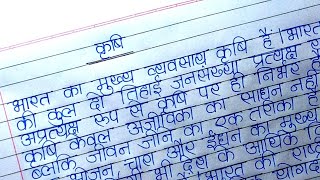 कृषि
भारत का मुख्य व्यवसाय कृषि है। भारत
की कुल दो तिहाई जनसंख्या प्रत्यक्ष
अप्रत्यक्ष रूप से कृषि पर ही निर्भर है
कृषि केवल अजीविका का साधन नहीं
ब्लकि जीवन जीने का एक तरीका है
भोजन, चारा और ईंधन का मुख्य
भी देश के आर्थिक
भारत का